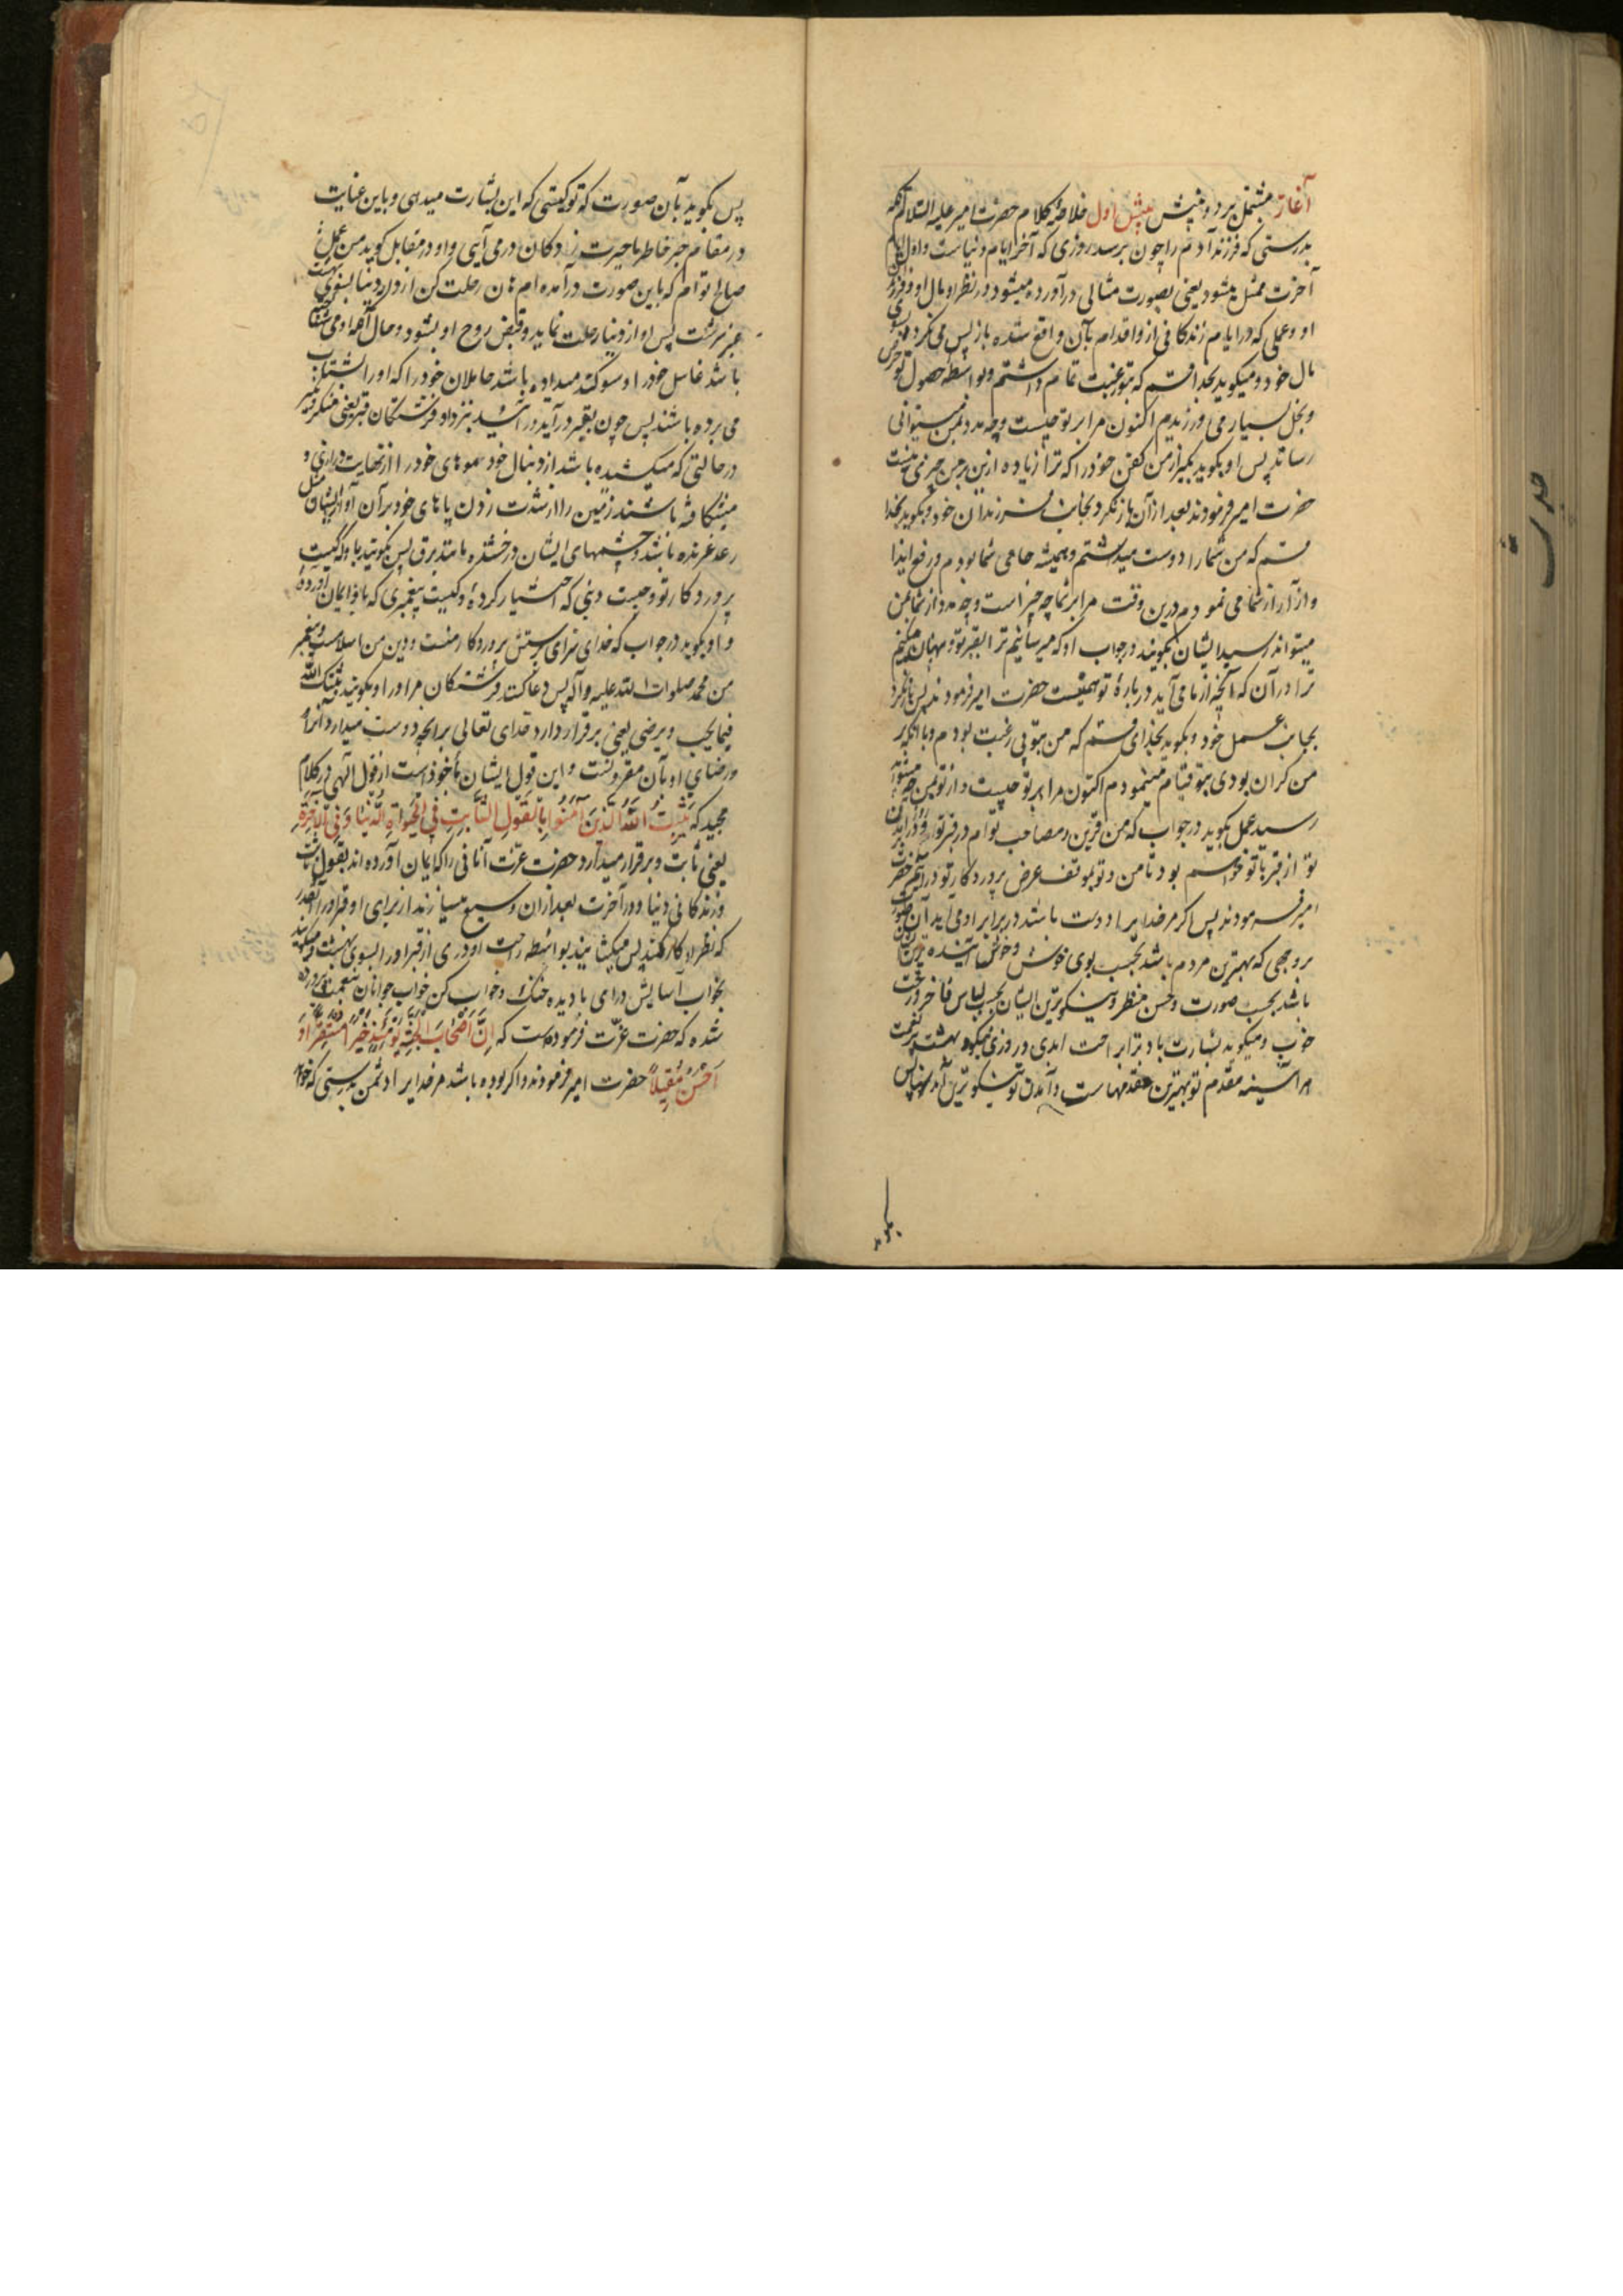 آغاز مشتمل بر دو بینش بینش اول خلاصهٔ کلام حضرت امیر علیه السلام آنکه
بدرستی که فرزند آدم را چون برسد روزی که آخر ایام دنیاست و اول ایام
آخرت ممثل میشود یعنی بصورت مثالی درآورده میشود در نظر او مال او و فرزند
او و عملی که در ایام زندگانی ازو اقدام بآن واقع شده باز پس می نکرد بسوی
مال خود و میکوید بخدا قسم که بتو رغبت تمام داشتم و بواسطه حصول تو حرص
و بخل بسیار می ورزیدم اکنون مرا بر تو چیست و چه مدد بمن میتوانی
رساند پس او بکوید بکیر از من کفن خود را که ترا زیاده ازین بر من چیزی نیست
حضرت امیر فرمودند بعد از آن باز نکرد بجانب فرزندان خود و بکوید بخدا
قسم که من شما را دوست میداشتم و همیشه حامی شما بودم و رفع ایذا
و آزار از شما می نمودم درین وقت مرا بر شما چه چیز است و چه مدد از شما بمن
میتواند رسید ایشان بکویند در جواب او که میرسانیم ترا بقبر تو و پنهان میکنیم
ترا در آن که آنچه از ما می آید در بارهٔ تو همینست حضرت امیر فرمودند پس باز نکرد
بجانب عمل خود و بکوید بخدای قسم که من بتو بی رغبت بودم و با آنکه بر
من کران بودی بتو قیام مینمودم اکنون مرا بر تو چیست و از تو بمن چه میتواند
رسید عمل بکوید در جواب که من قرین و مصاحب توام در قبر تو و روز برآمدن
تو از قبر با تو خواهم بود تا من و تو بموقف عرض پروردکار تو درآییم حضرت
امیر فرمودند پس اکر مر خدایرا دوست باشد در برابر او می آید آن صورت
بر وجهی که بهترین مردم باشد بحسب بوی خوش و خوش آینده ترین ایشان
باشد بحسب صورت و حسن منظر و نیکوترین ایشان بحسب لباس فاخر و رخت
خوب و میکوید بشارت باد ترا براحت ابدی و روزی نیکو و بهشت پرنعمت
هر آینه مقدم تو بهترین مقدمهاست و آمدن تو نیکوترین آمدنهاست پس
بکوید
پس بکوید بآن صورت که تو کیستی که این بشارت میدهی و باین عنایت
در مقام جبر خاطر ما حیرت زدکان درمی آیی و او در مقابل کوید من عمل
صالح توام که باین صورت درآمده ام هان رحلت کن از دار دنیا بسوی بهشت
عنبر سرشت پس او از دنیا رحلت نماید و قبض روح او بشود و حال آنکه او می شناخته
باشد غاسل خود را و سوکند میداده باشد حاملان خود را که او را بشتاب
می برده باشند پس چون بقبر درآید درآیند بنزد او فرشتکان قبر یعنی منکر و نکیر
در حالتی که میکشیده باشد از دنبال خود موهای خود را از نهایت درازی و
میشکافته باشند زمین را از شدت زدن پاهای خود بر آن آواز ایشان مثل
رعد غرنده باشد و چشمهای ایشان درخشنده مانند برق پس بکویند با او که کیست
پروردکار تو و چیست دینی که اختیار کردهٔ و کیست پیغمبری که باو ایمان آوردهٔ
و او بکوید در جواب که خدای سزای پرستش پروردکار منست و دین من اسلامست و پیغمبر
من محمد صلوات الله علیه و آله پس دعا کنند فرشتکان مر او را و بکویند ثبتک الله
فیما یحب و یرضی یعنی برقرار دارد خدای تعالی بر آنچه دوست میدارد آنرا
و رضای او بآن مقرونست و این قول ایشان مأخوذ است از قول الهی در کلام
مجید که یثبت الله الذین آمنوا بالقول الثابت فی الحیوة الدنیا و فی الآخرة
یعنی ثابت و برقرار میدارد حضرت عزت آنانی را که ایمان آورده اند بقول ثابت
در زندکانی دنیا و در آخرت بعد از آن وسیع میسازند از برای او قبر او را آنقدر
که نظر او کار کند پس میکشایند بواسطه راحت او دری از قبر او را بسوی بهشت و میکویند
بخواب آسایش درای با دیده خنک و خواب کن خواب جوانان بنعمت پرورده
شده که حضرت عزت فرموده است که إن أصحاب الجنة یومئذ خیر مستقرا و
أحسن مقیلا حضرت امیر فرمودند و اکر بوده باشد مر خدایرا دشمن بدرستی که خواهد